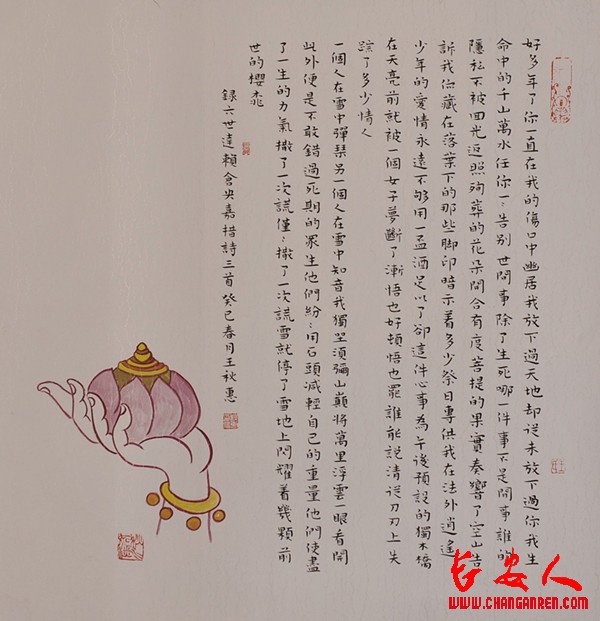 好多年了你一直在我的傷口中幽居我放下過天地却從未放下過你我生
命中的千山萬水任你一:告别世間事除了生死哪一件事不是閒事誰的
隱私不被回光返照殉葬的花朵開合有度菩提的果實奏響了空山告
訴我你藏在落葉下的那些脚印暗示着多少祭日專供我在法外逍遥
少年的愛情永遠不够用一盃酒足以了卻這件心事為午後預設的獨木橋
在天亮前就被一個女子夢斷了漸悟也好頓悟也罷誰能説清從刀刃上失
踪了多少情人
一個人在雪中彈琴另一個人在雪中知音我獨坐須彌山巔將萬里浮雲一眼看開
此外便是不敢錯過死期的眾生他們紛:用石頭減輕自己的重量他們使盡
了一生的力氣撒了一次謊僅:撒了一次謊雪就停了雪地上閃耀着幾顆前
世的櫻桃
録六世達賴倉央嘉措詩三首 癸巳春月王秋惠
長安人
WWW.CHANGANREN.COM